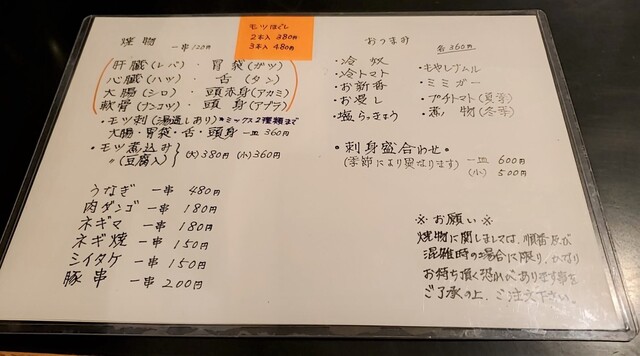 焼物 一串120円
モツほぐし
2本入 380円
3本入 480円
肝臓(レバ)・胃袋(ガツ)
心臓(ハツ)・舌(タン)
大腸(シロ)・頭赤身(アカミ)
軟骨(ナンコツ)・頭身(アブラ)
・モツ刺(湯通しあり)※ミックス2種類まで
大腸・胃袋・舌・頭身 一皿 360円
・モツ煮込み
(豆腐入)
(大)380円 (小)360円
うなぎ 一串 480円
肉ダンゴ 一串 180円
ネギマ 一串 180円
ネギ焼 一串 150円
シイタケ 一串 150円
豚串 一串 200円
おつまみ 各360円
・冷奴
・冷トマト
・お新香
・お浸し
・塩らっきょう
・もやしナムル
・ミミガー
・プチトマト(夏季)
・煮物(冬季)
・刺身盛合わせ
(季節により異なります)
一皿 600円
(小) 500円
※お願い※
焼物に関しましては、順番及び
混雑時の場合に限り、かなり
お待ち頂く恐れがあります事を
ご了承の上、ご注文下さい。